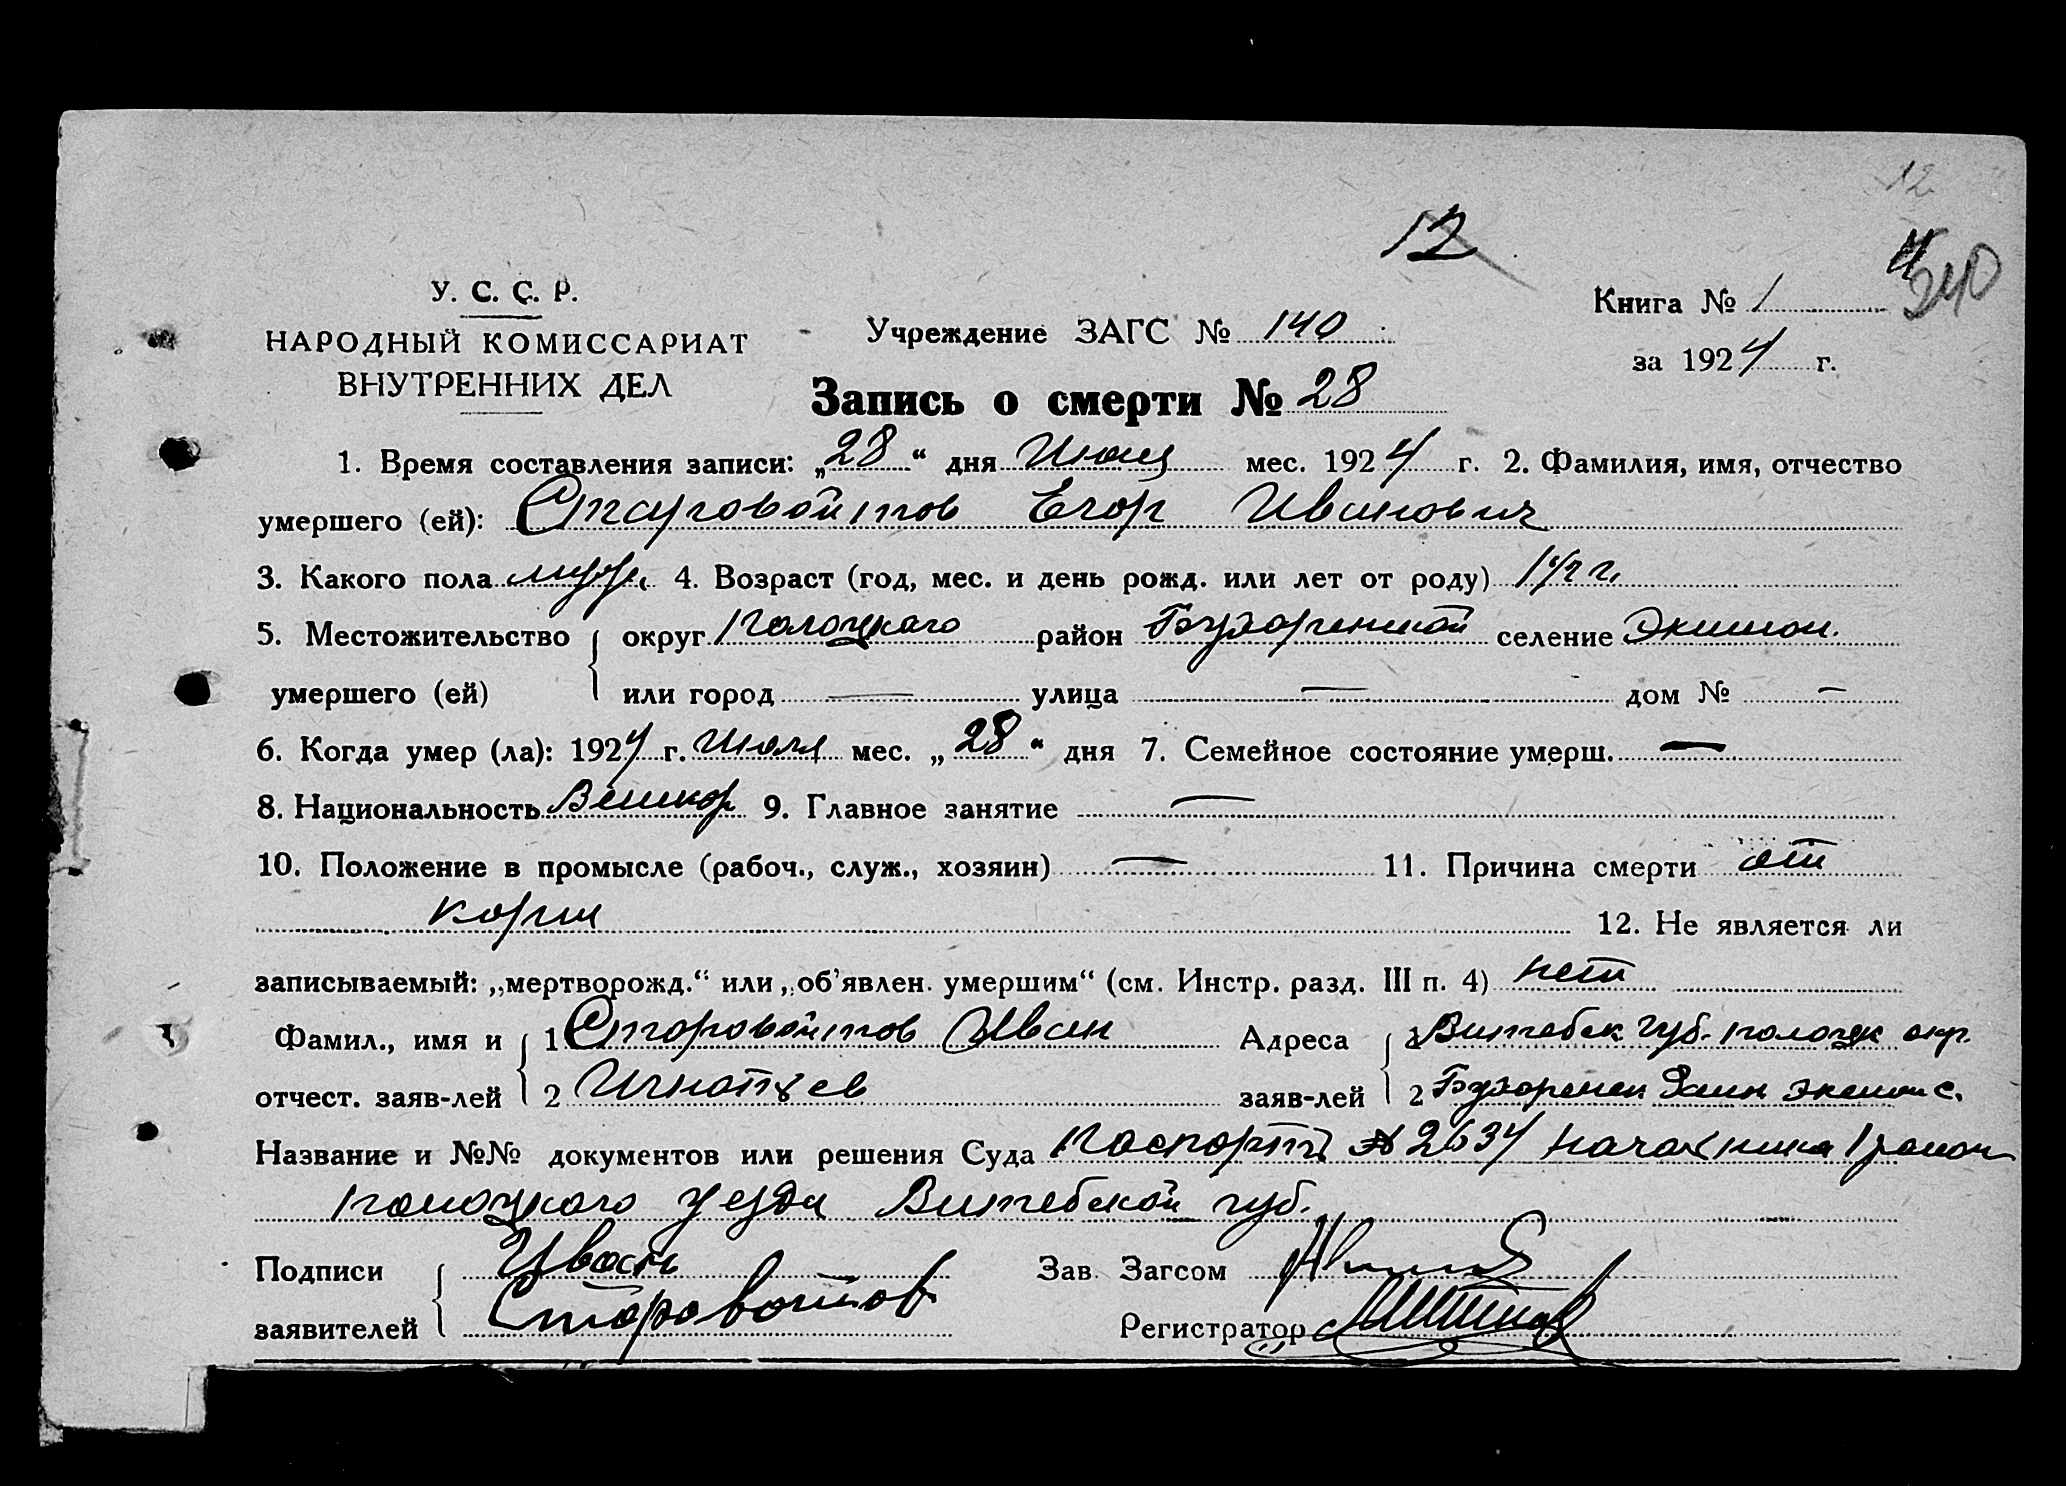 12
12
240
У. С. С. Р.
НАРОДНЫЙ КОМИССАРИАТ
ВНУТРЕННИХ ДЕЛ
Учреждение ЗАГС № 140
Книга № 1
за 1924 г.
Запись о смерти № 28
1. Время составления записи: „28“ дня Июля мес. 1924 г. 2. Фамилия, имя, отчество
умершего (ей): Старовойтов Егор Иванович
3. Какого пола муж. 4. Возраст (год, мес. и день рожд. или лет от роду) 1 1/2 г.
5. Местожительство { округ Полоцкаго район селение
умершего (ей) или город — улица — дом № —
6. Когда умер (ла): 1924 г. Июля мес. „28“ дня 7. Семейное состояние умерш. —
8. Национальность Великор 9. Главное занятие —
10. Положение в промысле (рабоч., служ., хозяин) — 11. Причина смерти от
кори 12. Не является ли
записываемый: „мертворожд.“ или „об'явлен. умершим“ (см. Инстр. разд. III п. 4) нет
Фамил., имя и { 1 Старовойтов Иван Адреса { 1 Витебск губ. полоцк окр.
отчест. заяв-лей 2 Игнатьев заяв-лей 2
Название и №№ документов или решения Суда Паспорта № 2634 началника 1 район
полоцкого уезда Витебской губ.
Подписи { Иван Зав. Загсом
заявителей Старовойтов Регистратор